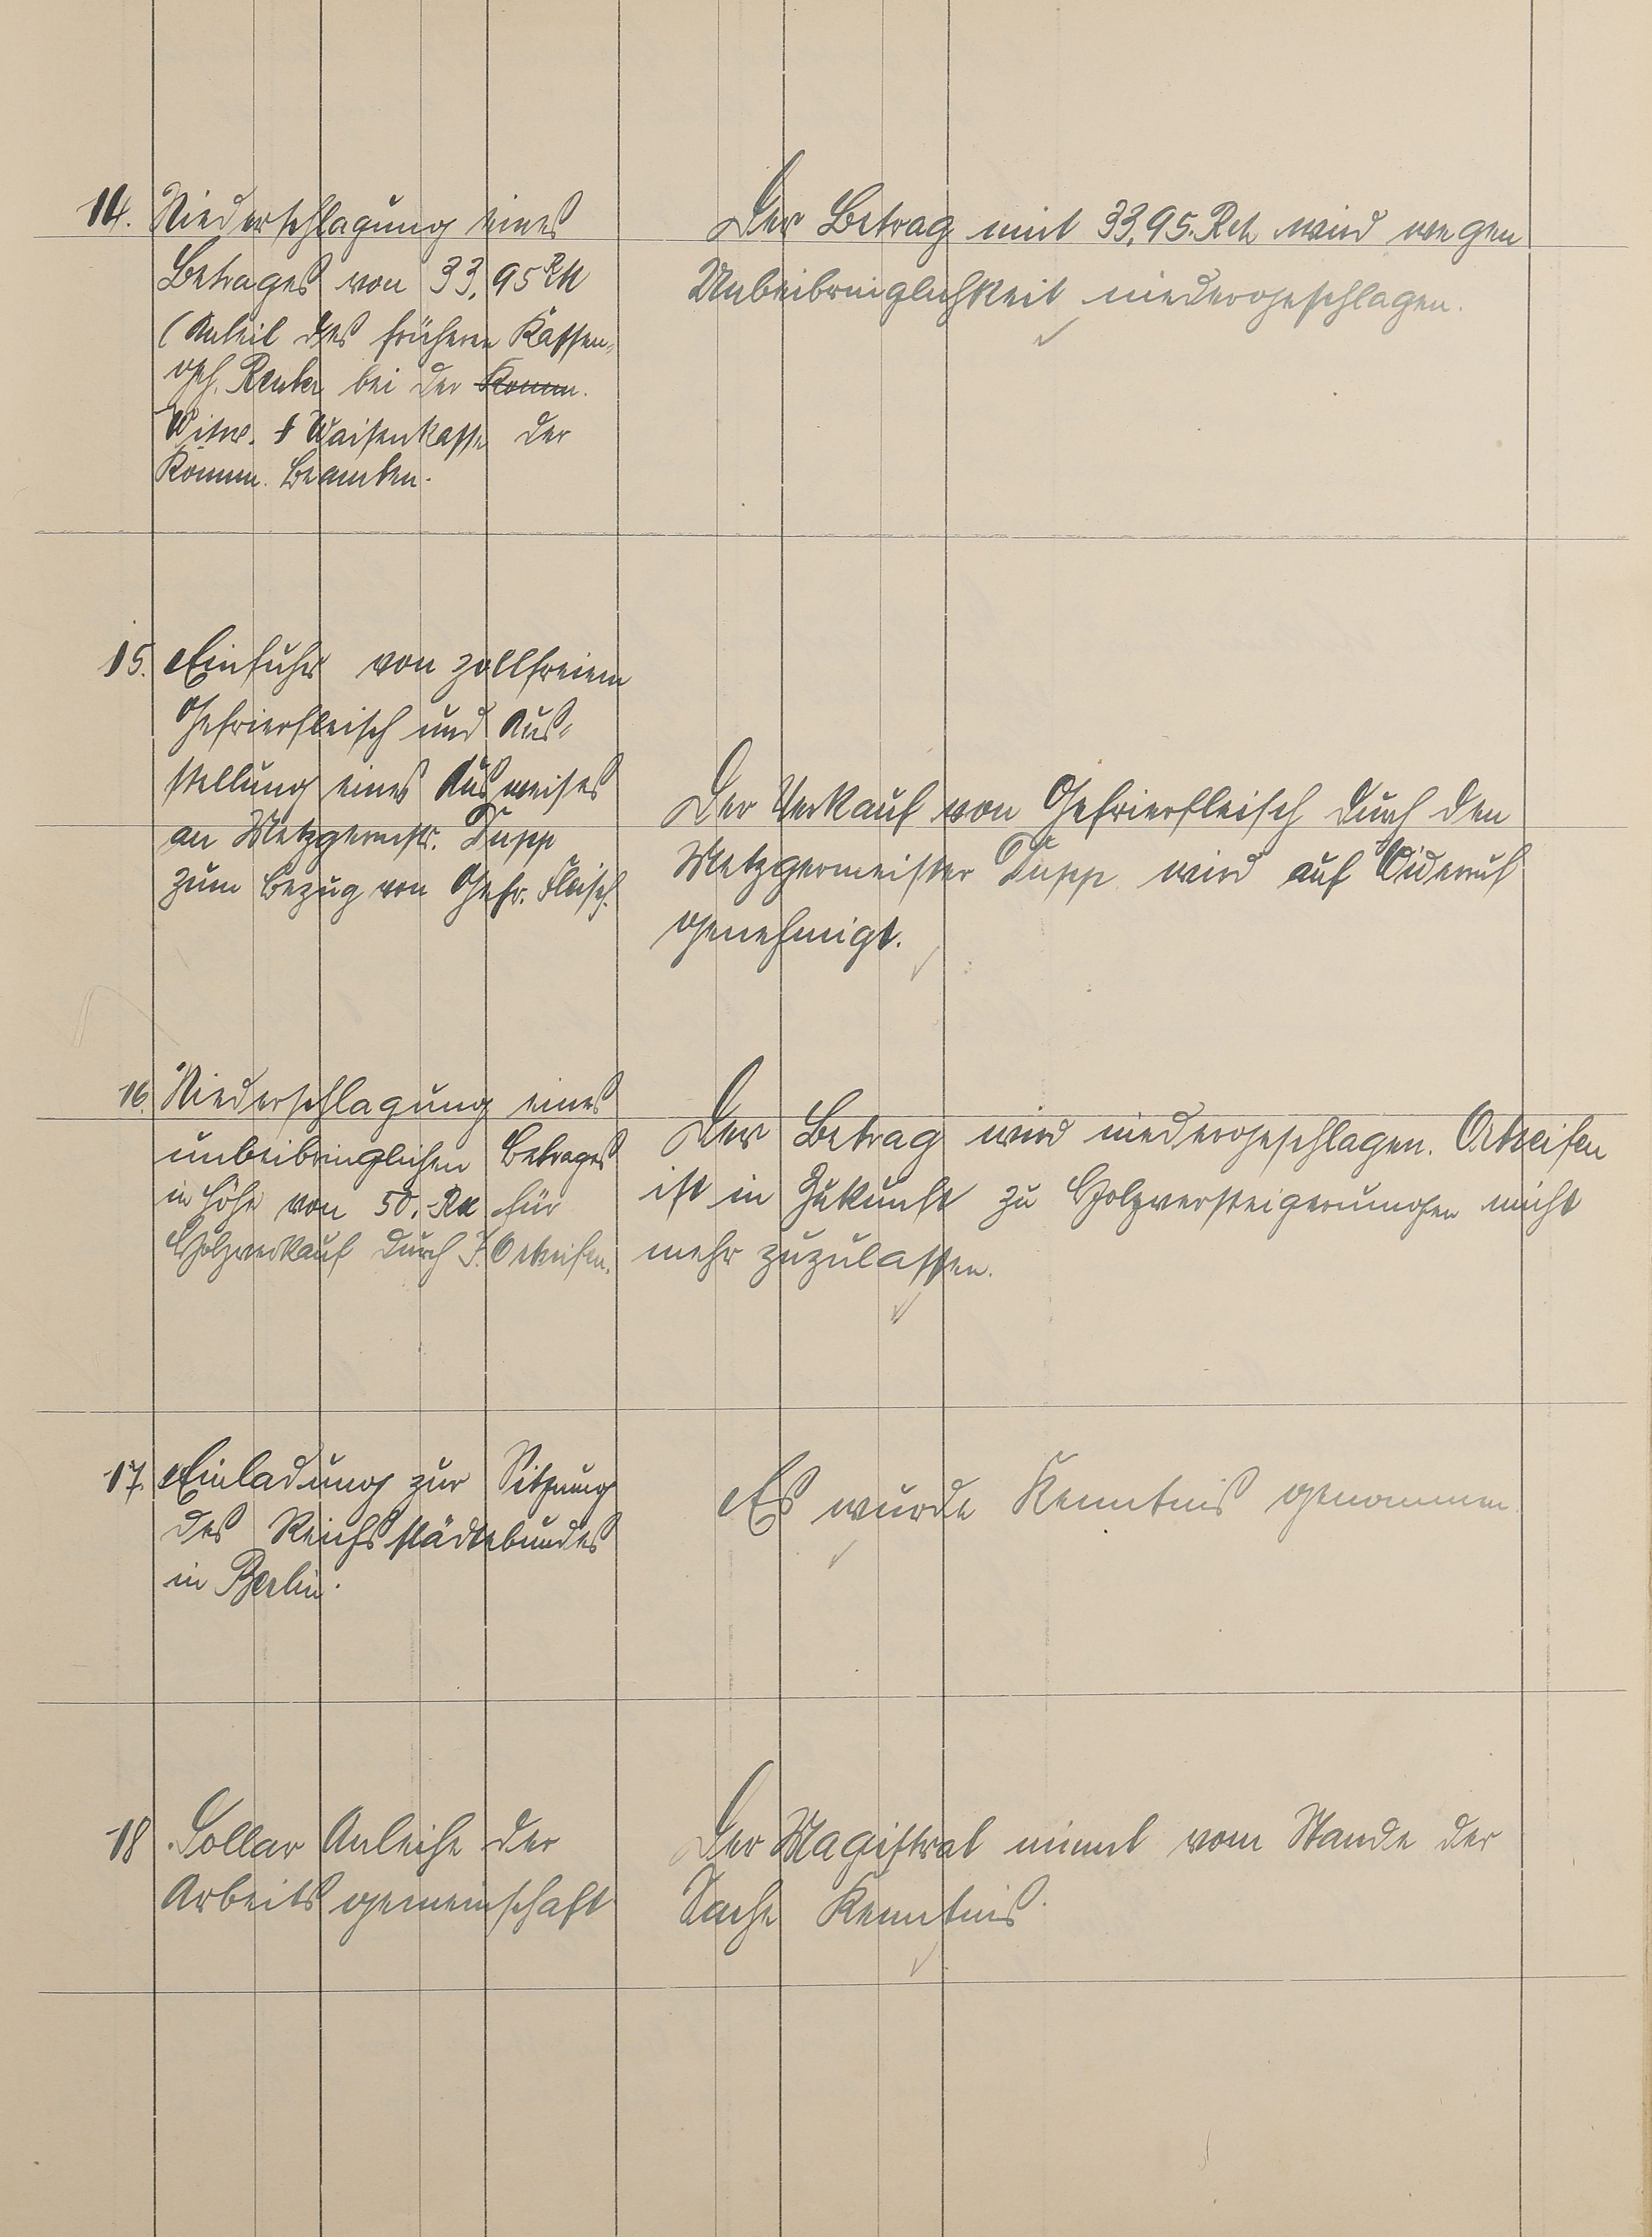 14. Niederschlagung eines
Betrages von 33,95 RM
(Anteil des früheren Kassen-
geh. Renker bei der Komm.
Witw. & Waisenkasse der
Komm. Beamten.
Der Betrag mit 33,95 RM wird wegen
Unbeibringlichkeit niedergeschlagen.
15. Einfuhr von zollfreiem
Gefrierfleisch und Aus-
stellung eines Ausweises
an Metzgermstr. Tupp
zum Bezug von Gefr. Fleisch.
Der Verkauf von Gefrierfleisch durch den
Metzgermeister Tupp wird auf Widerruf
genehmigt.
16. Niederschlagung eines
unbeibringlichen Betrages
in Höhe von 50,- RM für
Holzverkauf durch J.
Der Betrag wird niedergeschlagen.
ist in Zukunft zu Holzversteigerungen nicht
mehr zuzulassen.
17. Einladung zur Sitzung
des Reichsstädtebundes
in Berlin.
Es wurde Kenntnis genommen.
18. Dollar Anleihe der
Arbeitsgemeinschaft
Der Magistrat nimmt vom Stande der
Sache Kenntnis.